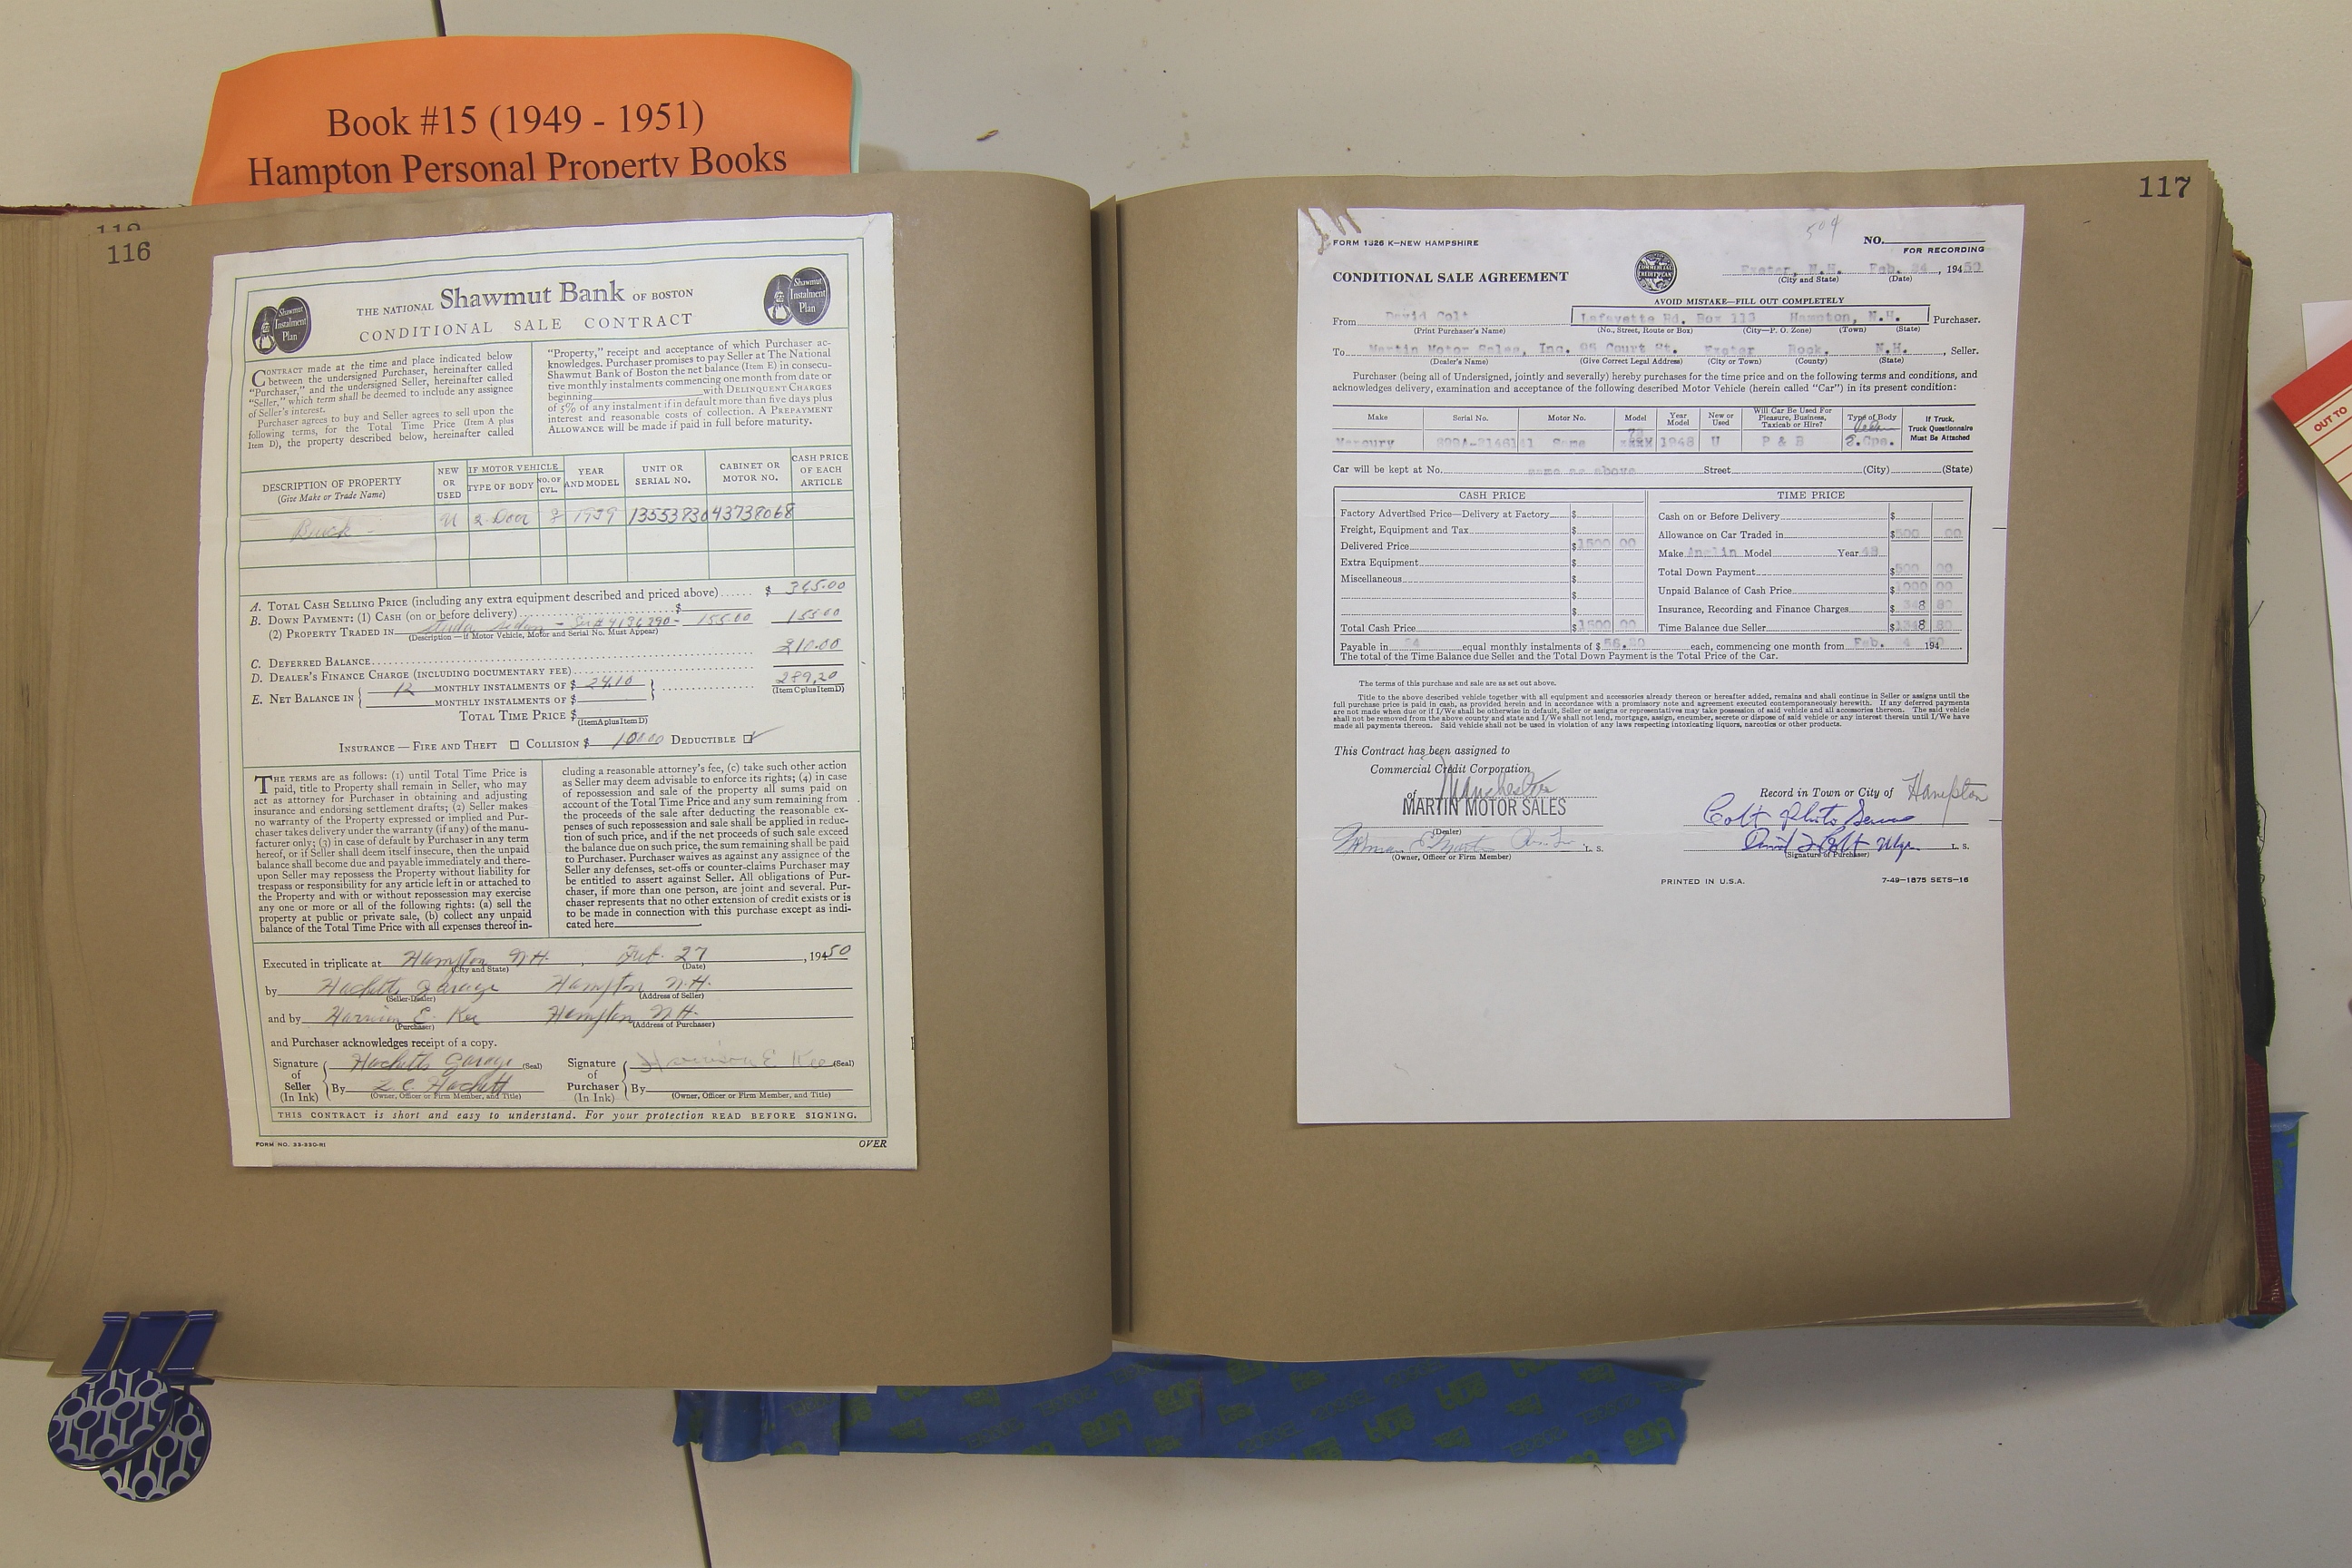 Book #15 (1949 - 1951)
Hampton Personal Property Books
116
Shawmut Instalment Plan
THE NATIONAL Shawmut Bank OF BOSTON
CONDITIONAL SALE CONTRACT
Shawmut Instalment Plan
CONTRACT made at the time and place indicated below
between the undersigned Purchaser, hereinafter called
"Purchaser," and the undersigned Seller, hereinafter called
"Seller," which term shall be deemed to include any assignee
of Seller's interest.
Purchaser agrees to buy and Seller agrees to sell upon the
following terms, for the Total Time Price (Item A plus
Item D), the property described below, hereinafter called
"Property," receipt and acceptance of which Purchaser ac-
knowledges. Purchaser promises to pay Seller at The National
Shawmut Bank of Boston the net balance (Item E) in consecu-
tive monthly instalments commencing one month from date or
beginning with DELINQUENT CHARGES
of 5% of any instalment if in default more than five days plus
interest and reasonable costs of collection. A PREPAYMENT
ALLOWANCE will be made if paid in full before maturity.
DESCRIPTION OF PROPERTY
(Give Make or Trade Name)
NEW OR USED
IF MOTOR VEHICLE
TYPE OF BODY
NO. OF CYL.
YEAR AND MODEL
UNIT OR SERIAL NO.
CABINET OR MOTOR NO.
CASH PRICE OF EACH ARTICLE
Buick U 2-Door 8 1939 13553830 43738068
A. TOTAL CASH SELLING PRICE (including any extra equipment described and priced above) $ 365.00
B. DOWN PAYMENT: (1) CASH (on or before delivery) $
(2) PROPERTY TRADED IN 155.00 155.00
(Description — if Motor Vehicle, Motor and Serial No. Must Appear)
C. DEFERRED BALANCE 210.00
D. DEALER'S FINANCE CHARGE (INCLUDING DOCUMENTARY FEE)
E. NET BALANCE IN 12 MONTHLY INSTALMENTS OF $ 24.10 289.20
MONTHLY INSTALMENTS OF $ (Item C plus Item D)
TOTAL TIME PRICE $
(Item A plus Item D)
INSURANCE — FIRE AND THEFT COLLISION $ 100.00 DEDUCTIBLE
THE TERMS are as follows: (1) until Total Time Price is
paid, title to Property shall remain in Seller, who may
act as attorney for Purchaser in obtaining and adjusting
insurance and endorsing settlement drafts; (2) Seller makes
no warranty of the Property expressed or implied and Pur-
chaser takes delivery under the warranty (if any) of the manu-
facturer only; (3) in case of default by Purchaser in any term
hereof, or if Seller shall deem itself insecure, then the unpaid
balance shall become due and payable immediately and there-
upon Seller may repossess the Property without liability for
trespass or responsibility for any article left in or attached to
the Property and with or without repossession may exercise
any one or more or all of the following rights: (a) sell the
property at public or private sale, (b) collect any unpaid
balance of the Total Time Price with all expenses thereof in-
cluding a reasonable attorney's fee, (c) take such other action
as Seller may deem advisable to enforce its rights; (4) in case
of repossession and sale of the property all sums paid on
account of the Total Time Price and any sum remaining from
the proceeds of the sale after deducting the reasonable ex-
penses of such repossession and sale shall be applied in reduc-
tion of such price, and if the net proceeds of such sale exceed
the balance due on such price, the sum remaining shall be paid
to Purchaser. Purchaser waives as against any assignee of the
Seller any defenses, set-offs or counter-claims Purchaser may
be entitled to assert against Seller. All obligations of Pur-
chaser, if more than one person, are joint and several. Pur-
chaser represents that no other extension of credit exists or is
to be made in connection with this purchase except as indi-
cated here
Executed in triplicate at Hampton N.H. , Feb. 27 , 1950
(City and State) (Date)
by Hacketts Garage Hampton N.H.
(Seller-Dealer) (Address of Seller)
and by Harrison E. Kee Hampton N.H.
(Purchaser) (Address of Purchaser)
and Purchaser acknowledges receipt of a copy.
Signature of Seller (In Ink) Hacketts Garage (Seal)
By L. C. Hackett
(Owner, Officer or Firm Member, and Title)
Signature of Purchaser (In Ink) Harrison E Kee (Seal)
By
(Owner, Officer or Firm Member, and Title)
THIS CONTRACT is short and easy to understand. For your protection READ BEFORE SIGNING.
FORM NO. 33-330-RI
OVER
117
509
FORM 1326 K—NEW HAMPSHIRE
NO.
FOR RECORDING
CONDITIONAL SALE AGREEMENT
COMMERCIAL CREDIT CAN
Exeter, N.H. Feb. 24, 1950
(City and State) (Date)
AVOID MISTAKE—FILL OUT COMPLETELY
From David Colt Lafayette Rd. Box 113 Hampton, N.H. Purchaser.
(Print Purchaser's Name) (No., Street, Route or Box) (City—P. O. Zone) (Town) (State)
To Martin Motor Sales, Inc. 95 Court St. Exeter Rock. N.H. , Seller.
(Dealer's Name) (Give Correct Legal Address) (City or Town) (County) (State)
Purchaser (being all of Undersigned, jointly and severally) hereby purchases for the time price and on the following terms and conditions, and
acknowledges delivery, examination and acceptance of the following described Motor Vehicle (herein called "Car") in its present condition:
Make Serial No. Motor No. Model Year Model New or Used Will Car Be Used For Pleasure, Business, Taxicab or Hire? Type of Body If Truck, Truck Questionnaire Must Be Attached
Mercury 899A-2146141 Same 1948 U P & B S.Cpe.
Car will be kept at No. same as above Street (City) (State)
CASH PRICE
Factory Advertised Price—Delivery at Factory $
Freight, Equipment and Tax $
Delivered Price $ 1500 00
Extra Equipment $
Miscellaneous $
$
$
Total Cash Price $ 1500 00
TIME PRICE
Cash on or Before Delivery $
Allowance on Car Traded in $ 500 00
Make Anglin Model Year 48
Total Down Payment $ 500 00
Unpaid Balance of Cash Price $ 1000 00
Insurance, Recording and Finance Charges $ 348 80
Time Balance due Seller $ 1348 80
Payable in 24 equal monthly instalments of $ 56.20 each, commencing one month from Feb. 194
The total of the Time Balance due Seller and the Total Down Payment is the Total Price of the Car.
The terms of this purchase and sale are as set out above.
Title to the above described vehicle together with all equipment and accessories already thereon or hereafter added, remains and shall continue in Seller or assigns until the
full purchase price is paid in cash, as provided herein and in accordance with a promissory note and agreement executed contemporaneously herewith. If any deferred payments
are not made when due or if I/We shall be otherwise in default, Seller or assigns or representatives may take possession of said vehicle and all accessories thereon. The said vehicle
shall not be removed from the above county and state and I/We shall not lend, mortgage, assign, encumber, secrete or dispose of said vehicle or any interest therein until I/We have
made all payments thereon. Said vehicle shall not be used in violation of any laws respecting intoxicating liquors, narcotics or other products.
This Contract has been assigned to
Commercial Credit Corporation
of Manchester
MARTIN MOTOR SALES
(Dealer)
L. S.
(Owner, Officer or Firm Member)
Record in Town or City of Hampton
Colt Photo Service
David Colt Mgr. L. S.
(Signature of Purchaser)
PRINTED IN U.S.A.
7-49—1875 SETS—16
OUT TO